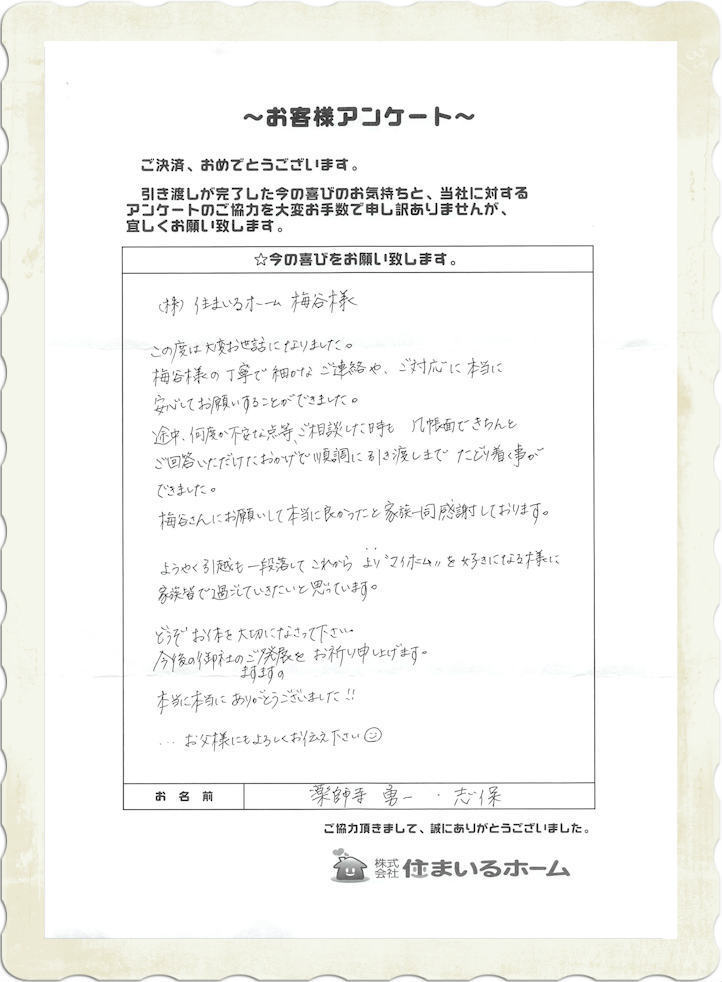 ～お客様アンケート～
ご決済、おめでとうございます。
引き渡しが完了した今の喜びのお気持ちと、当社に対する
アンケートのご協力を大変お手数で申し訳ありませんが、
宜しくお願い致します。
☆今の喜びをお願い致します。
(株) 住まいるホーム 梅谷様
この度は大変お世話になりました。
梅谷様の丁寧で細かな ご連絡や、ご対応に本当に
安心してお願いすることができました。
途中、何度か不安な点等、ご相談した時も 几帳面できちんと
ご回答いただけたおかげで順調に引き渡しまで たどり着く事が
できました。
梅谷さんにお願いして本当に良かったと家族一同感謝しております。
ようやく引越も一段落して これから より"マイホーム"を好きになる様に
家族皆で過ごしていきたいと思っています。
どうぞ お体を大切になさって下さい。
今後の御社のご発展を お祈り申し上げます。
ますますの
本当に本当に ありがとうございました!!
... お父様にもよろしくお伝え下さい☺
お名前 薬師寺 勇一 ・ 志保
ご協力頂きまして、誠にありがとうございました。
株式会社 住まいるホーム